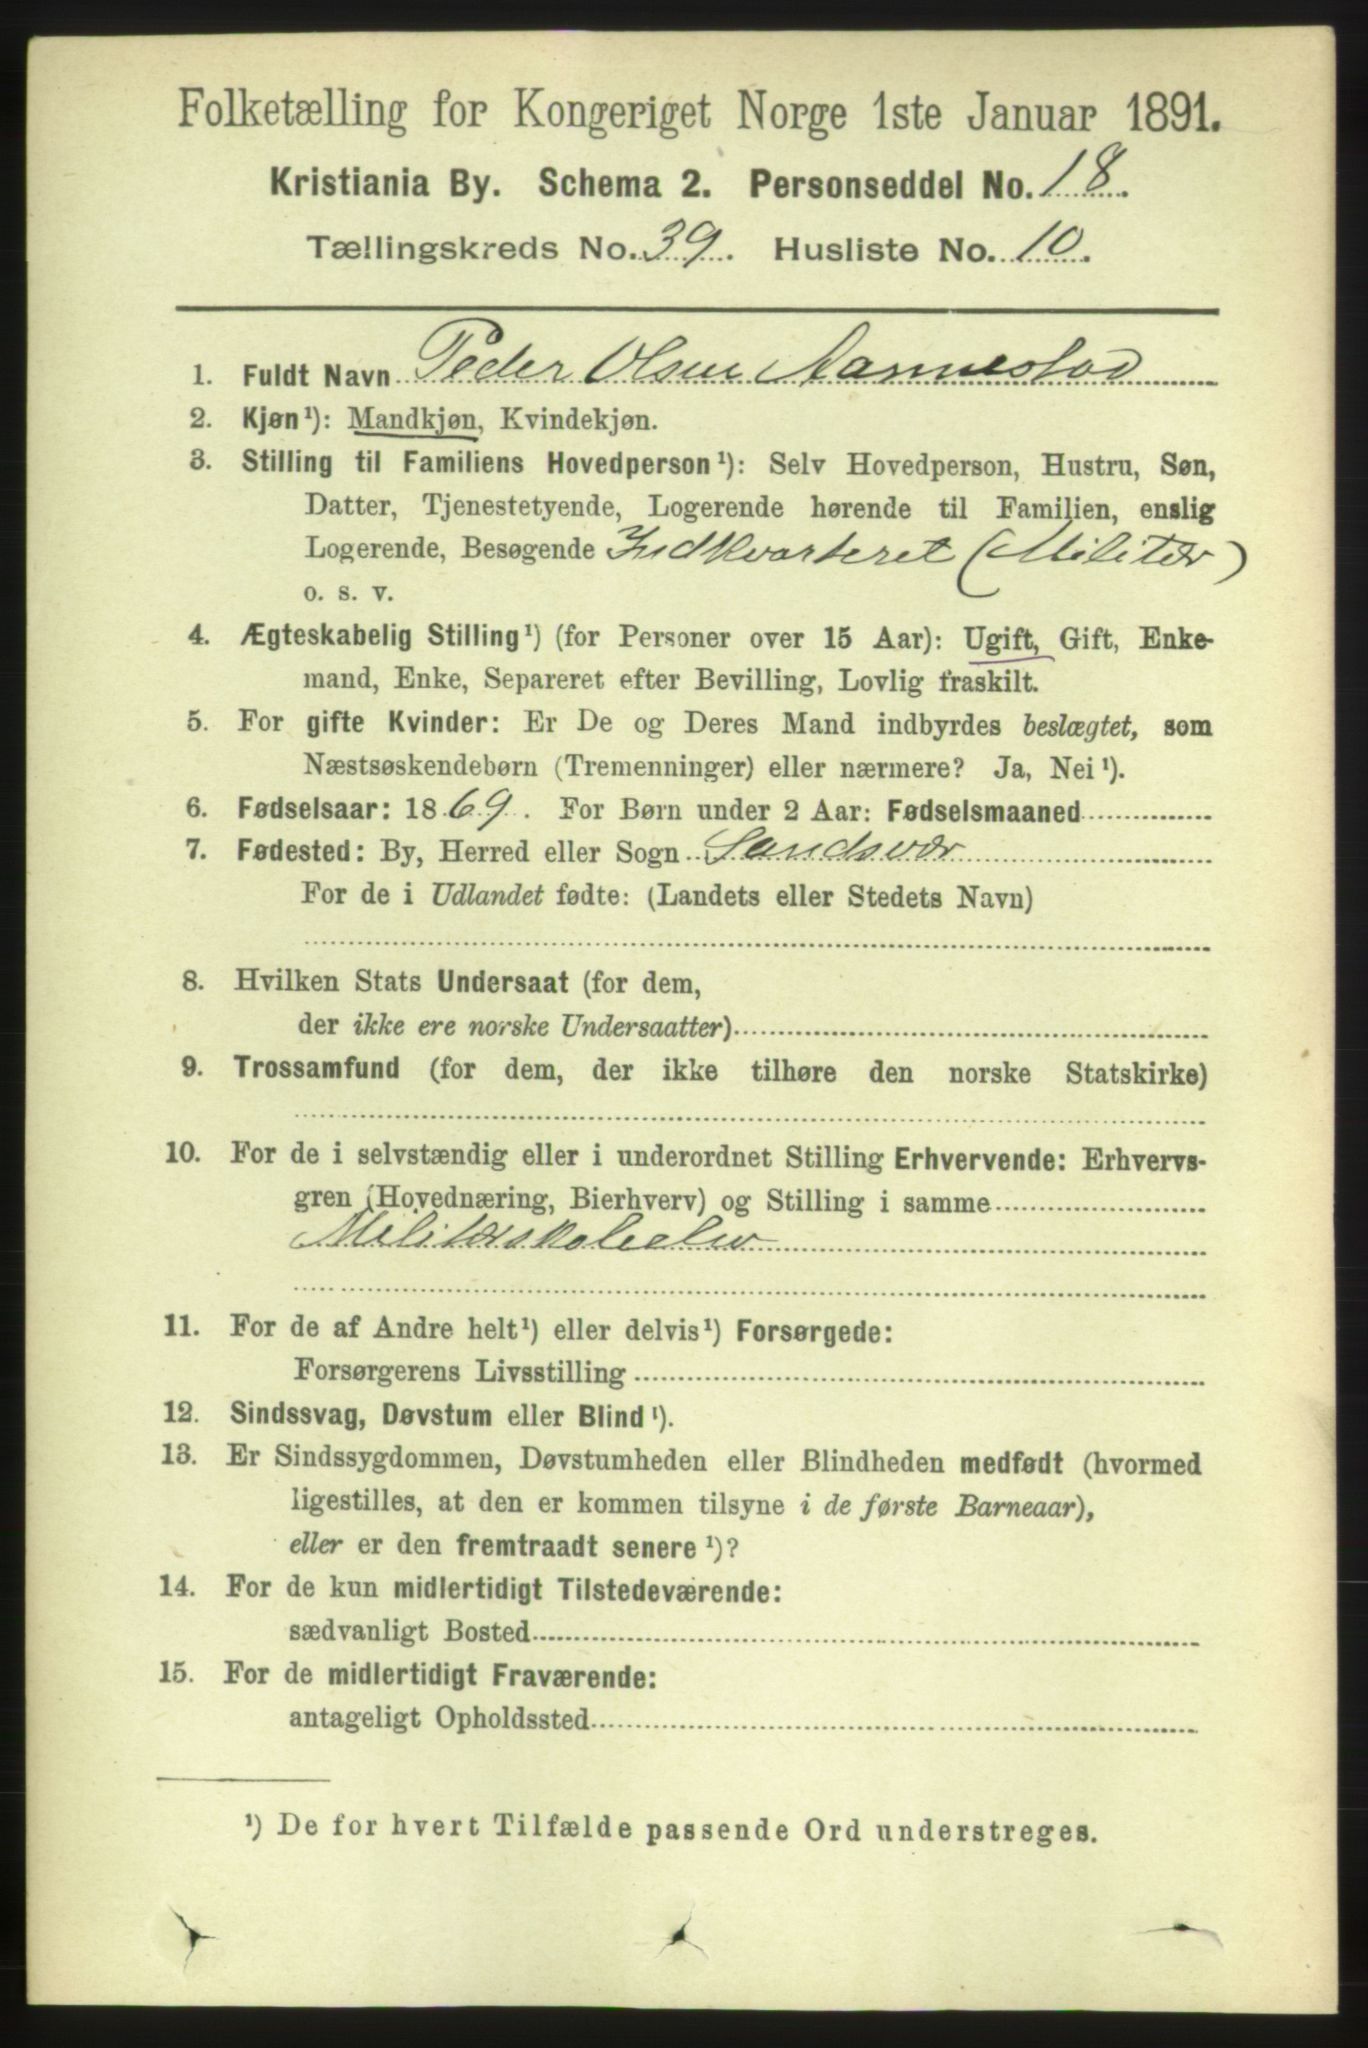 Folketælling for Kongeriget Norge 1ste Januar 1891.
Kristiania By. Schema 2. Personseddel No. 18.
Tællingskreds No. 39. Husliste No. 10.
1. Fuldt Navn Peder Olsen Aannestad
2. Kjøn¹): Mandkjøn, Kvindekjøn.
3. Stilling til Familiens Hovedperson¹): Selv Hovedperson, Hustru, Søn,
Datter, Tjenestetyende, Logerende hørende til Familien, enslig
Logerende, Besøgende Indkvarteret (Militær)
o. s. v.
4. Ægteskabelig Stilling¹) (for Personer over 15 Aar): Ugift, Gift, Enke-
mand, Enke, Separeret efter Bevilling, Lovlig fraskilt.
5. For gifte Kvinder: Er De og Deres Mand indbyrdes beslægtet, som
Næstsøskendebørn (Tremenninger) eller nærmere? Ja, Nei¹).
6. Fødselsaar: 1869. For Børn under 2 Aar: Fødselsmaaned
7. Fødested: By, Herred eller Sogn Sandsvær
For de i Udlandet fødte: (Landets eller Stedets Navn)
8. Hvilken Stats Undersaat (for dem,
der ikke ere norske Undersaatter)
9. Trossamfund (for dem, der ikke tilhøre den norske Statskirke)
10. For de i selvstændig eller i underordnet Stilling Erhvervende: Erhvervs-
gren (Hovednæring, Bierhverv) og Stilling i samme
Militærskoleelev
11. For de af Andre helt¹) eller delvis¹) Forsørgede:
Forsørgerens Livsstilling
12. Sindssvag, Døvstum eller Blind¹).
13. Er Sindssygdommen, Døvstumheden eller Blindheden medfødt (hvormed
ligestilles, at den er kommen tilsyne i de første Barneaar),
eller er den fremtraadt senere¹)?
14. For de kun midlertidigt Tilstedeværende:
sædvanligt Bosted
15. For de midlertidigt Fraværende:
antageligt Opholdssted
¹) De for hvert Tilfælde passende Ord understreges.